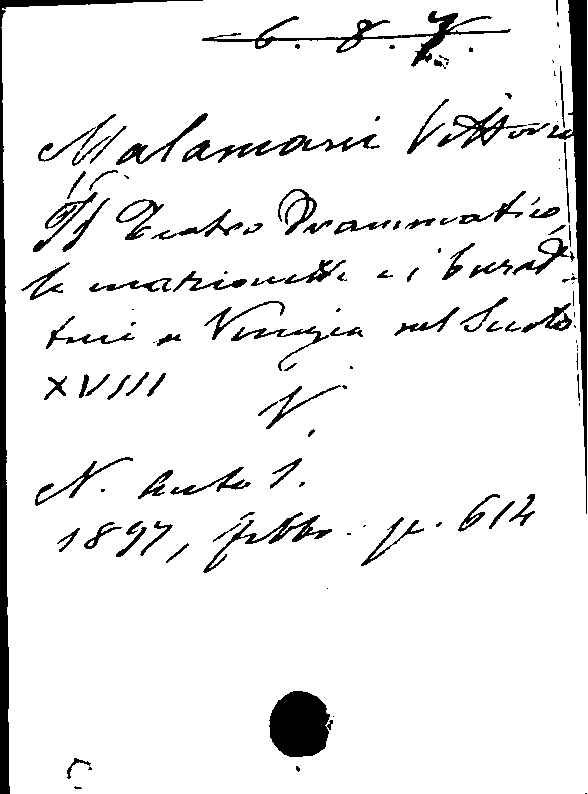 6. 8. V.
Malamani Vittorio
Il Teatro Drammatico,
le marionette e i burat
tini a Venezia nel Secolo
XVIII
V.
N. Anto 1.
1897, febbr. p. 614